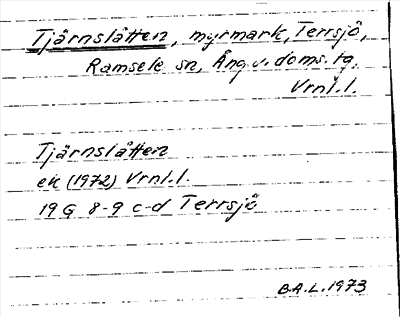 Tjärnslåtten, myrmark, Terrsjö,
Ramsele sn, Ång. v. doms. tg.
Vrnl.l.
Tjärnslåtten
ek (1972) Vrnl.l.
19 G 8-9 c-d Terrsjö
B.A.L. 1973